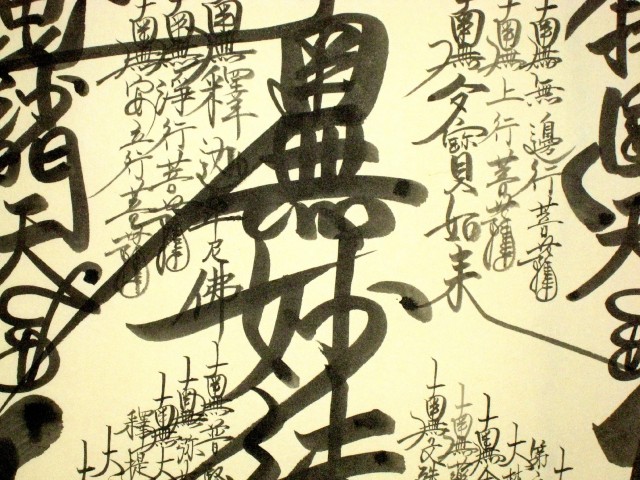 國天
南無無邊行菩薩
南無上行菩薩
南無多寶如来
南無妙法
南無釋迦牟尼佛
南無淨行菩薩
南無安立行菩薩
毘沙門天
第六
大梵
南無舎
南無薬
南無文殊
南無普賢
南無弥
南無大
釋提
大